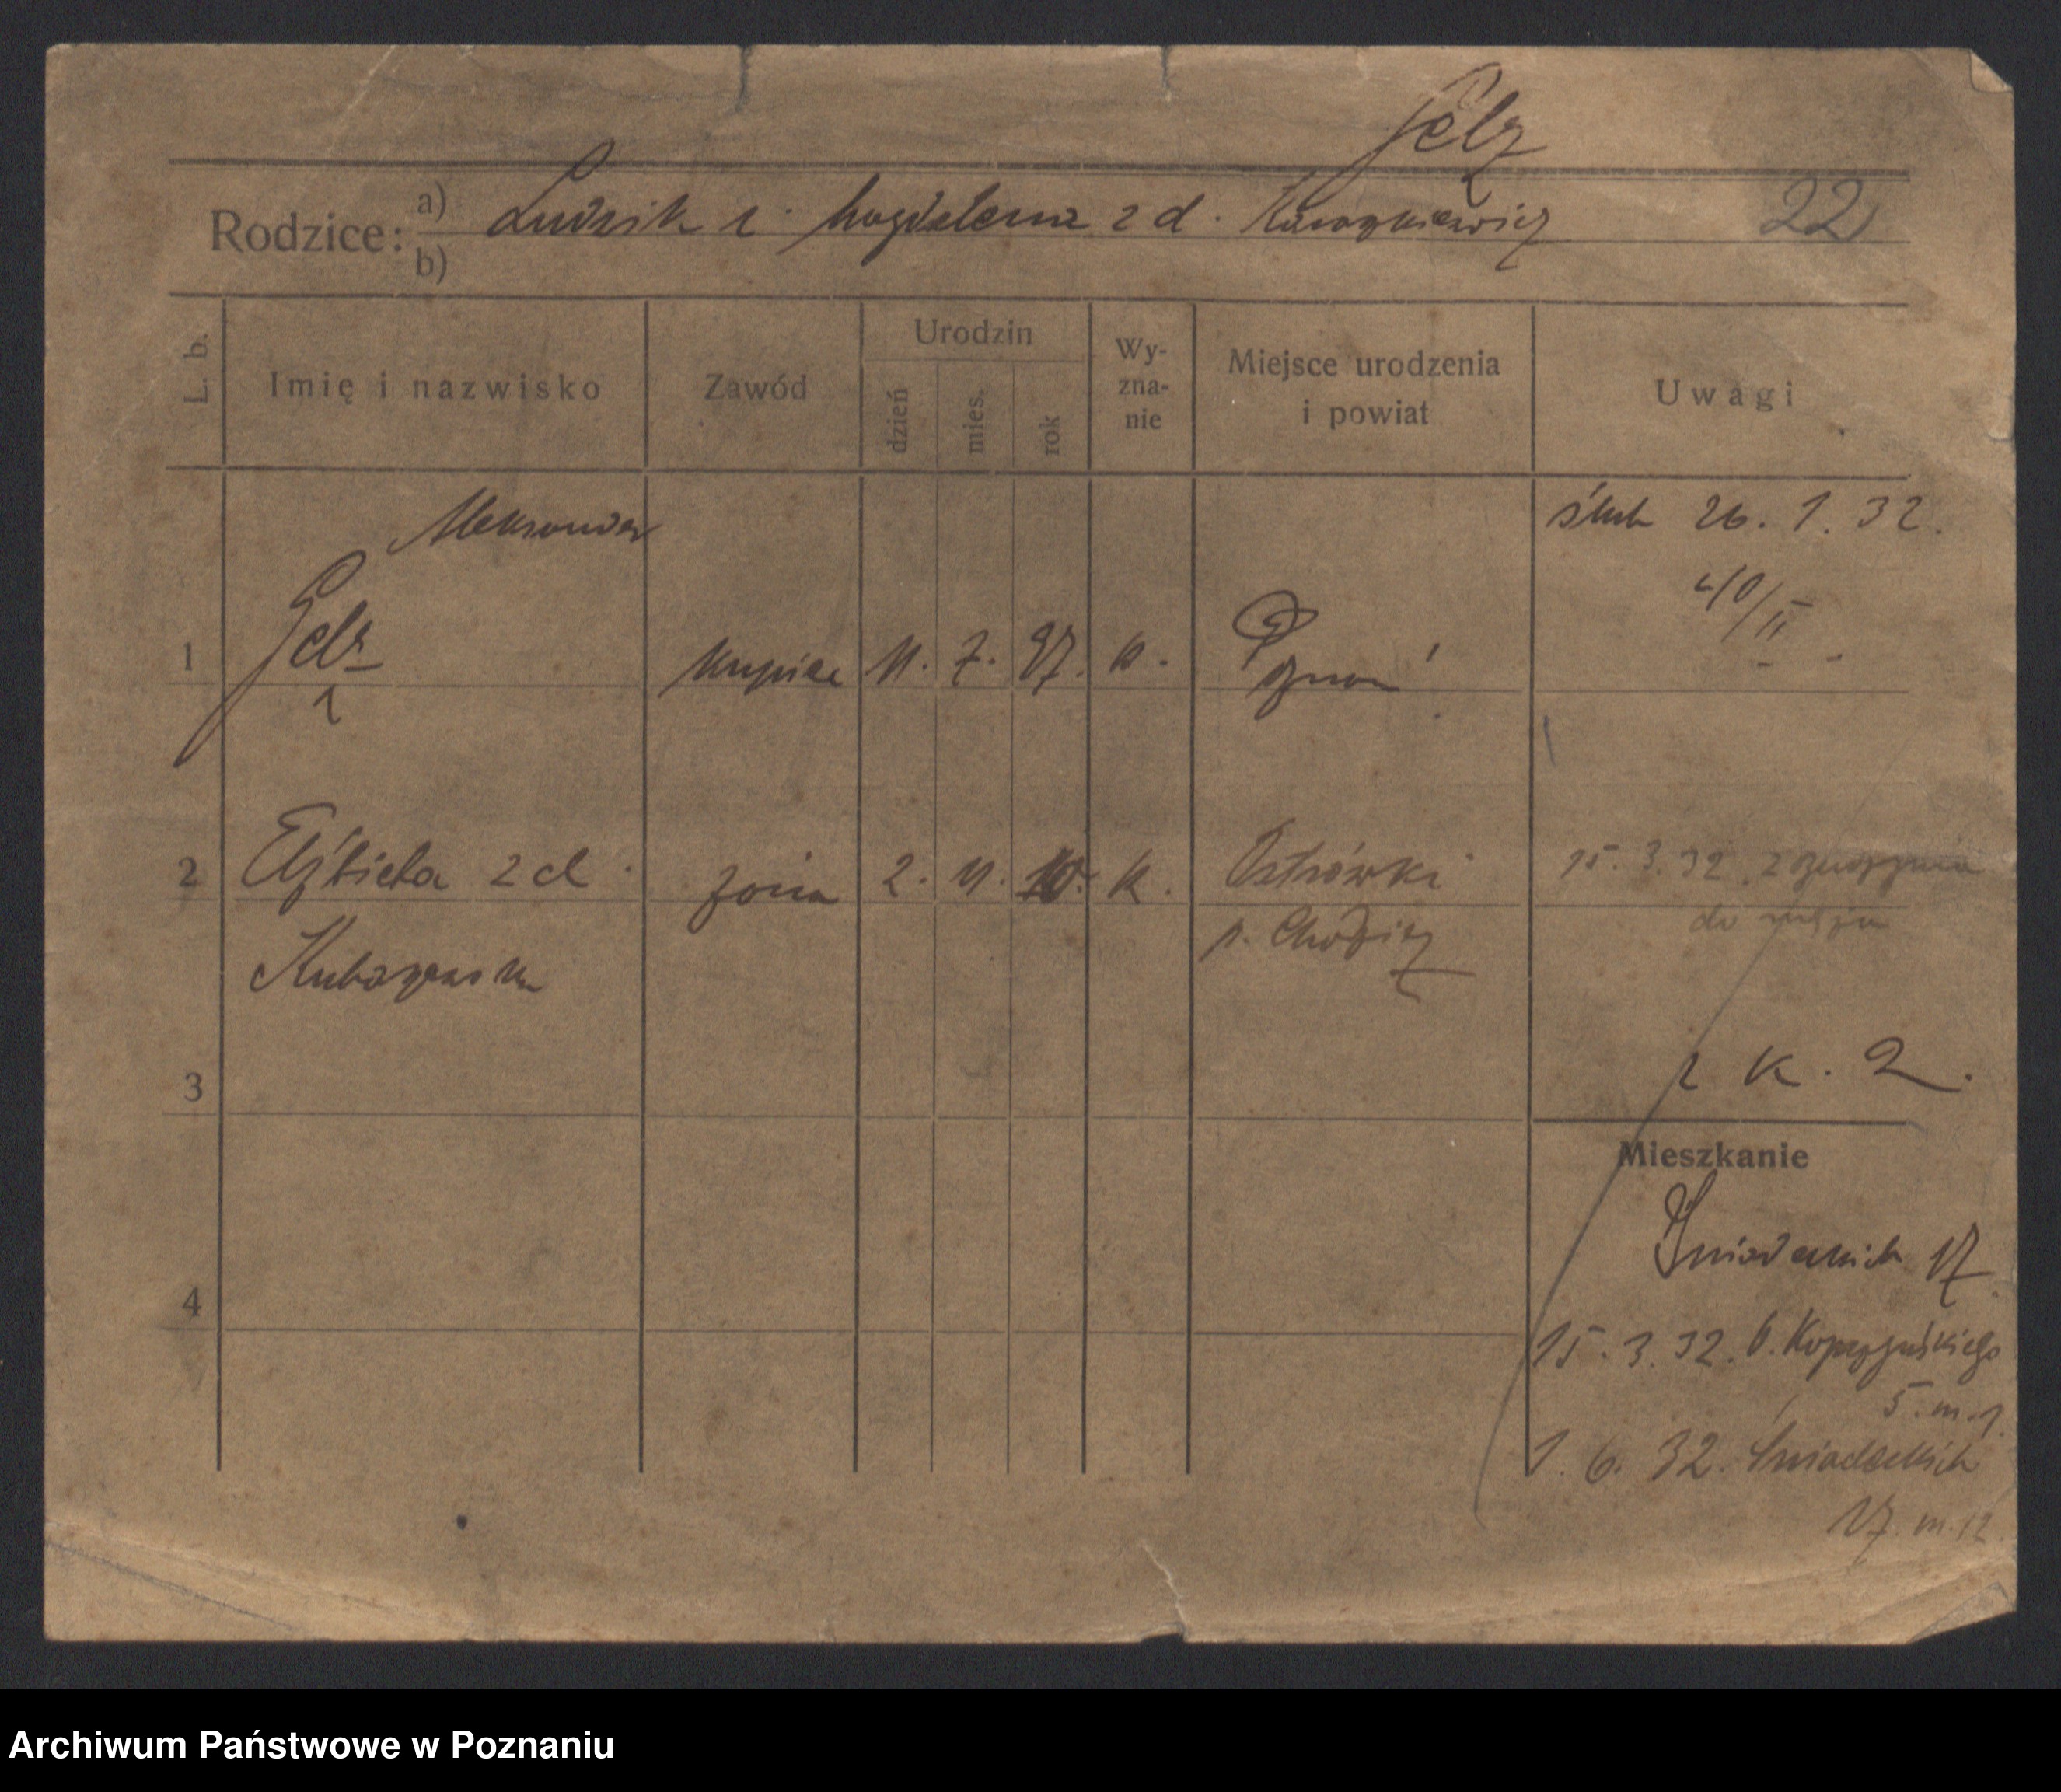 Gelz
22
Rodzice: a) Ludwik i Magdalena z d.
b)
L. b. Imię i nazwisko Zawód Urodzin dzień mies. rok Wy-zna-nie Miejsce urodzenia i powiat Uwagi
Aleksander ślub 26. 1. 32.
40/II
1 Gelz kupiec 11. 7. 97. k. Poznań
2 Elżbieta z d. żona 2. 11. 10. k. Ostrówki 15. 3. 32.
p. Chodzież do męża
3
z k. 2.
Mieszkanie
Śniadeckich 17.
4
15. 3. 32.
5. m. 1.
1. 6. 32. Śniadeckich
17. m. 12
Archiwum Państwowe w Poznaniu